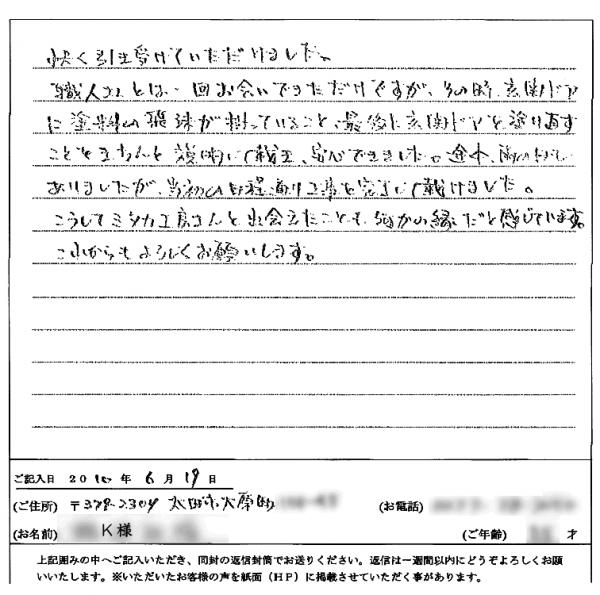 快く引き受けていただけました。
職人さんとは、一回お会いできただけですが、その時、玄関ドア
に塗料の飛沫が付っていること、最後に玄関ドアを塗り直す
ことをきちんと説明して戴き、安心できました。途中、雨の日も
ありましたが、当初の日程通り工事を完了して戴けました。
こうしてミタカ工房さんと出会えたことも何かの縁だと感じています。
これからもよろしくお願いします。
ご記入日 20 年 6月19日
(ご住所) 〒378-2304 太田市大原町 (お電話)
(お名前) K様 (ご年齢) 才
上記囲みの中へご記入いただき、同封の返信封筒でお送りください。返信は一週間以内にどうぞよろしくお願
いいたします。※いただいたお客様の声を紙面（HP）に掲載させていただく事があります。